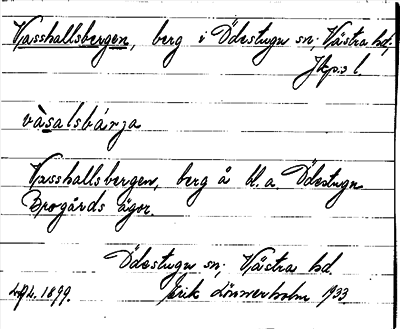 Vasshallsbergen, berg i Ödestugu sn; Västra hd;
Jkp:s l.
vàsalsbárja
Vasshallsbergen, berg å U. a. Ödestugu
Brogårds ägor.
Ödestugu sn; Västra hd.
1899. Erik Lönnerholm 1933